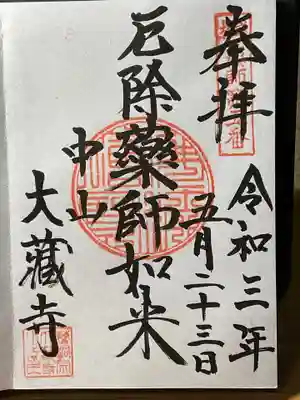 奉拝
令和三年
五月二十三日
厄除藥師如来
中山
大藏寺